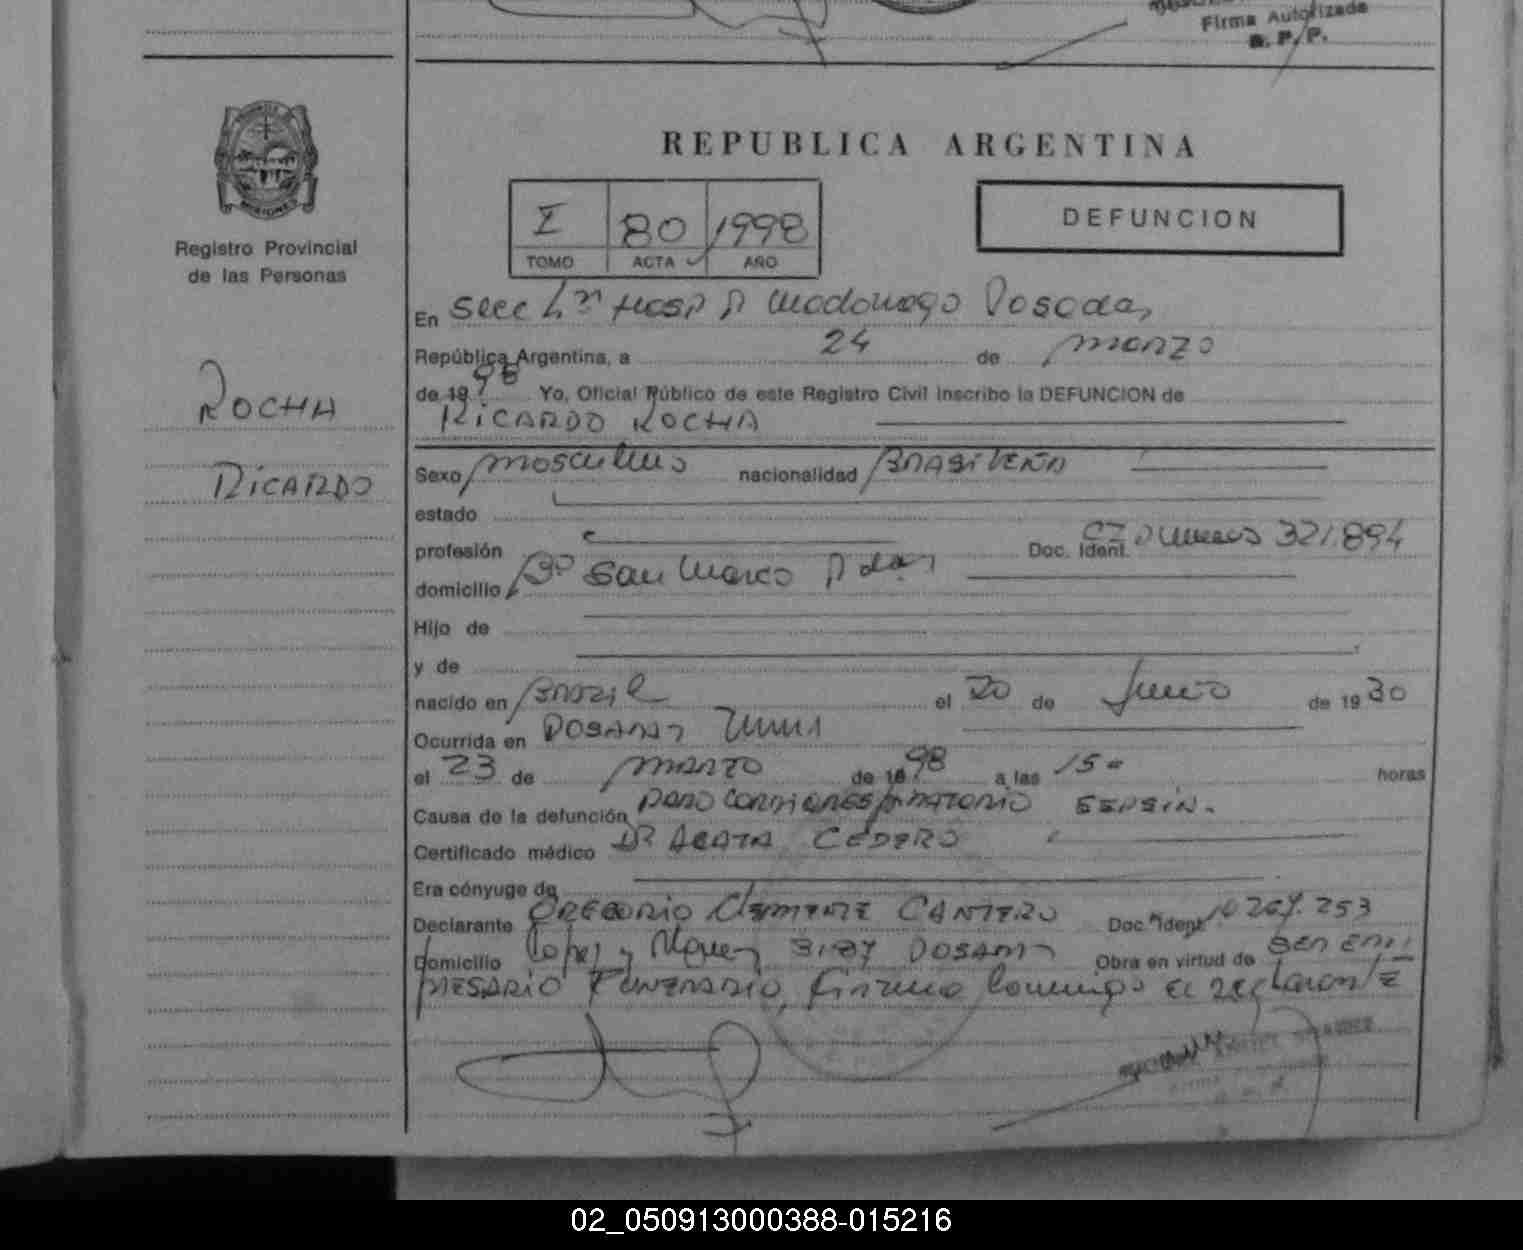 Firma Autorizada
R. P. P.
MISIONES
REPUBLICA ARGENTINA
I 80 1998
TOMO ACTA AÑO
DEFUNCION
Registro Provincial
de las Personas
ROCHA
RICARDO
En Secc 4ta Hosp R Madariaga Posadas
República Argentina, a 24 de marzo
de 1998 Yo, Oficial Público de este Registro Civil inscribo la DEFUNCION de
RICARDO ROCHA
Sexo masculino nacionalidad BRASILEÑA
estado
profesión Doc. Ident. CI 321.894
domicilio Bº San Marco Pdas
Hijo de
y de
nacido en Brazil el 20 de Junio de 1930
Ocurrida en POSADAS
el 23 de marzo de 1998 a las 15 horas
Causa de la defunción paro cardiorespiratorio SEPSIN.
Certificado médico DR CEDERO
Era cónyuge de
Declarante GREGORIO Clemente CANTERO Doc. Ident. 253
Domicilio Lopez y Planes 3187 POSADAS Obra en virtud de SER EM
PRESARIO FUNERARIO, firmando conmigo el declarante
02_050913000388-015216